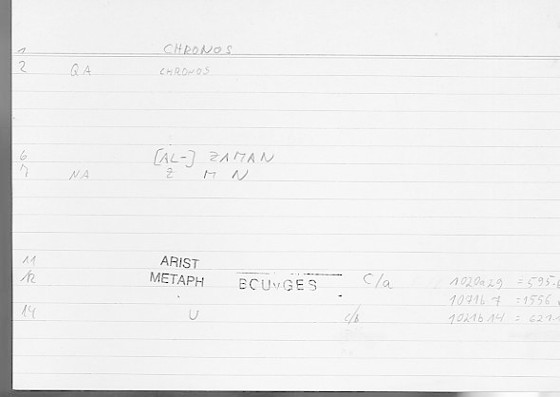 1 CHRONOS
2 QA CHRONOS
6 [AL-] ZAMAN
7 NA Z M N
11 ARIST
12 METAPH BOUYGES C/a 1020a29 = 595-
1071b 7 = 1556
14 U c/b 1021b14 = 621-